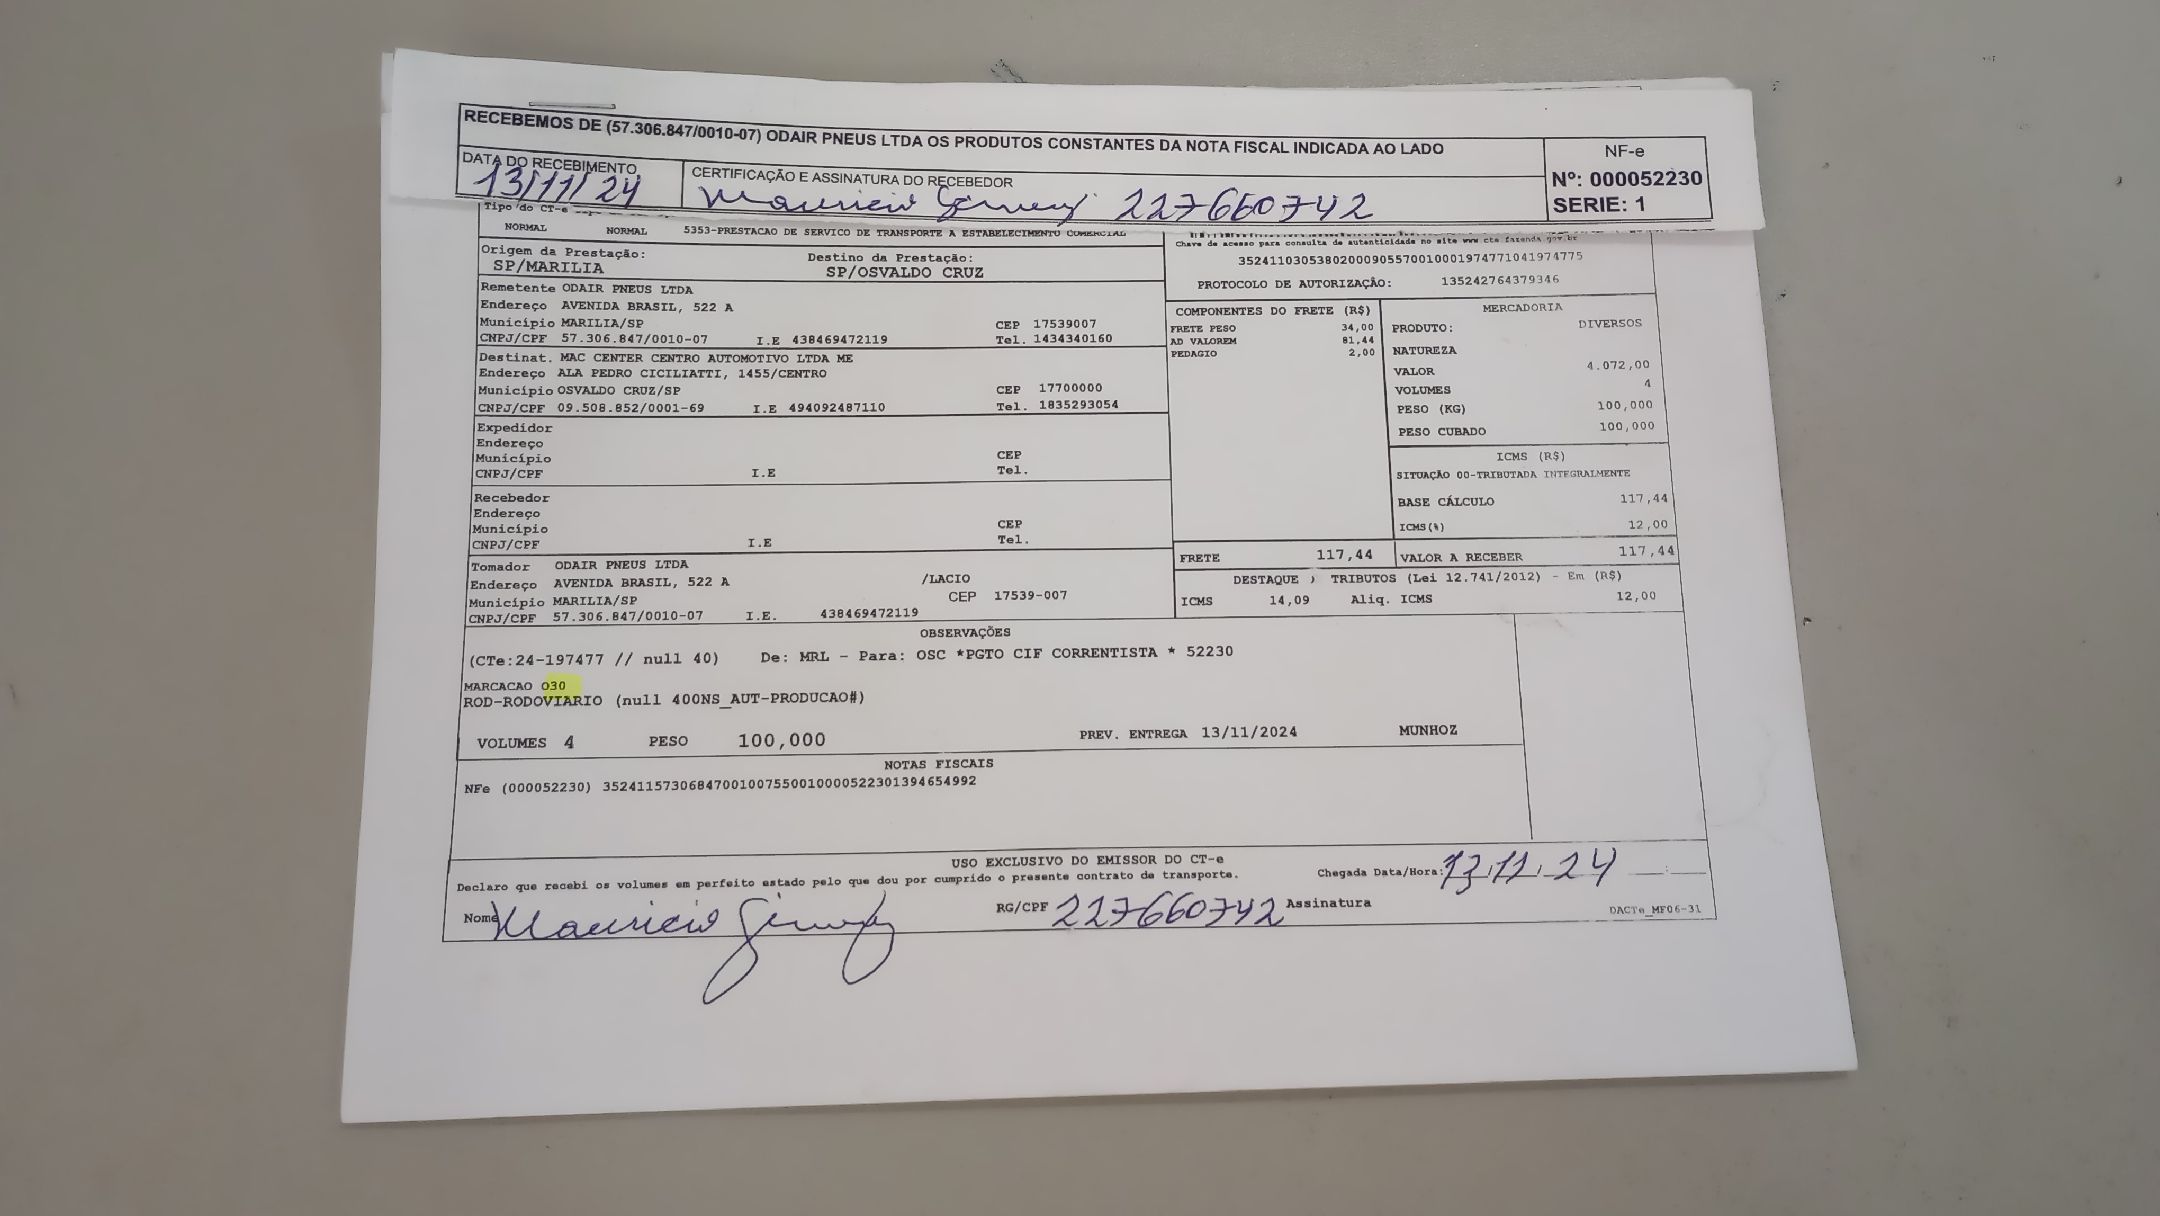 RECEBEMOS DE (57.306.847/0010-07) ODAIR PNEUS LTDA OS PRODUTOS CONSTANTES DA NOTA FISCAL INDICADA AO LADO
NF-e
Nº: 000052230
SERIE: 1
DATA DO RECEBIMENTO
13/11/24
CERTIFICAÇÃO E ASSINATURA DO RECEBEDOR
Mauricio 227660742
Tipo do CT-e
NORMAL NORMAL 5353-PRESTACAO DE SERVICO DE TRANSPORTE A ESTABELECIMENTO COMERCIAL
Chave de acesso para consulta de autenticidade no site www cte fazenda.gov.br
35241103053802000905570010001974771041974775
PROTOCOLO DE AUTORIZAÇÃO: 135242764379346
Origem da Prestação: Destino da Prestação:
SP/MARILIA SP/OSVALDO CRUZ
Remetente ODAIR PNEUS LTDA
Endereço AVENIDA BRASIL, 522 A
Município MARILIA/SP CEP 17539007
CNPJ/CPF 57.306.847/0010-07 I.E 438469472119 Tel. 1434340160
Destinat. MAC CENTER CENTRO AUTOMOTIVO LTDA ME
Endereço ALA PEDRO CICILIATTI, 1455/CENTRO
Município OSVALDO CRUZ/SP CEP 17700000
CNPJ/CPF 09.508.852/0001-69 I.E 494092487110 Tel. 1835293054
Expedidor
Endereço
Município CEP
CNPJ/CPF I.E Tel.
Recebedor
Endereço
Município CEP
CNPJ/CPF I.E Tel.
Tomador ODAIR PNEUS LTDA
Endereço AVENIDA BRASIL, 522 A /LACIO
Município MARILIA/SP CEP 17539-007
CNPJ/CPF 57.306.847/0010-07 I.E. 438469472119
COMPONENTES DO FRETE (R$)
FRETE PESO 34,00
AD VALOREM 81,44
PEDAGIO 2,00
MERCADORIA
PRODUTO: DIVERSOS
NATUREZA
VALOR 4.072,00
VOLUMES 4
PESO (KG) 100,000
PESO CUBADO 100,000
ICMS (R$)
SITUAÇÃO 00-TRIBUTADA INTEGRALMENTE
BASE CÁLCULO 117,44
ICMS(%) 12,00
FRETE 117,44 VALOR A RECEBER 117,44
DESTAQUE ) TRIBUTOS (Lei 12.741/2012) - Em (R$)
ICMS 14,09 Aliq. ICMS 12,00
OBSERVAÇÕES
(CTe:24-197477 // null 40) De: MRL - Para: OSC *PGTO CIF CORRENTISTA * 52230
MARCACAO 030
ROD-RODOVIARIO (null 400NS_AUT-PRODUCAO#)
VOLUMES 4 PESO 100,000 PREV. ENTREGA 13/11/2024 MUNHOZ
NOTAS FISCAIS
NFe (000052230) 35241157306847001007550010000522301394654992
USO EXCLUSIVO DO EMISSOR DO CT-e
Declaro que recebi os volumes em perfeito estado pelo que dou por cumprido o presente contrato de transporte. Chegada Data/Hora: 13/11/24
Nome Mauricio RG/CPF 227660742 Assinatura
DACTe_MF06-31